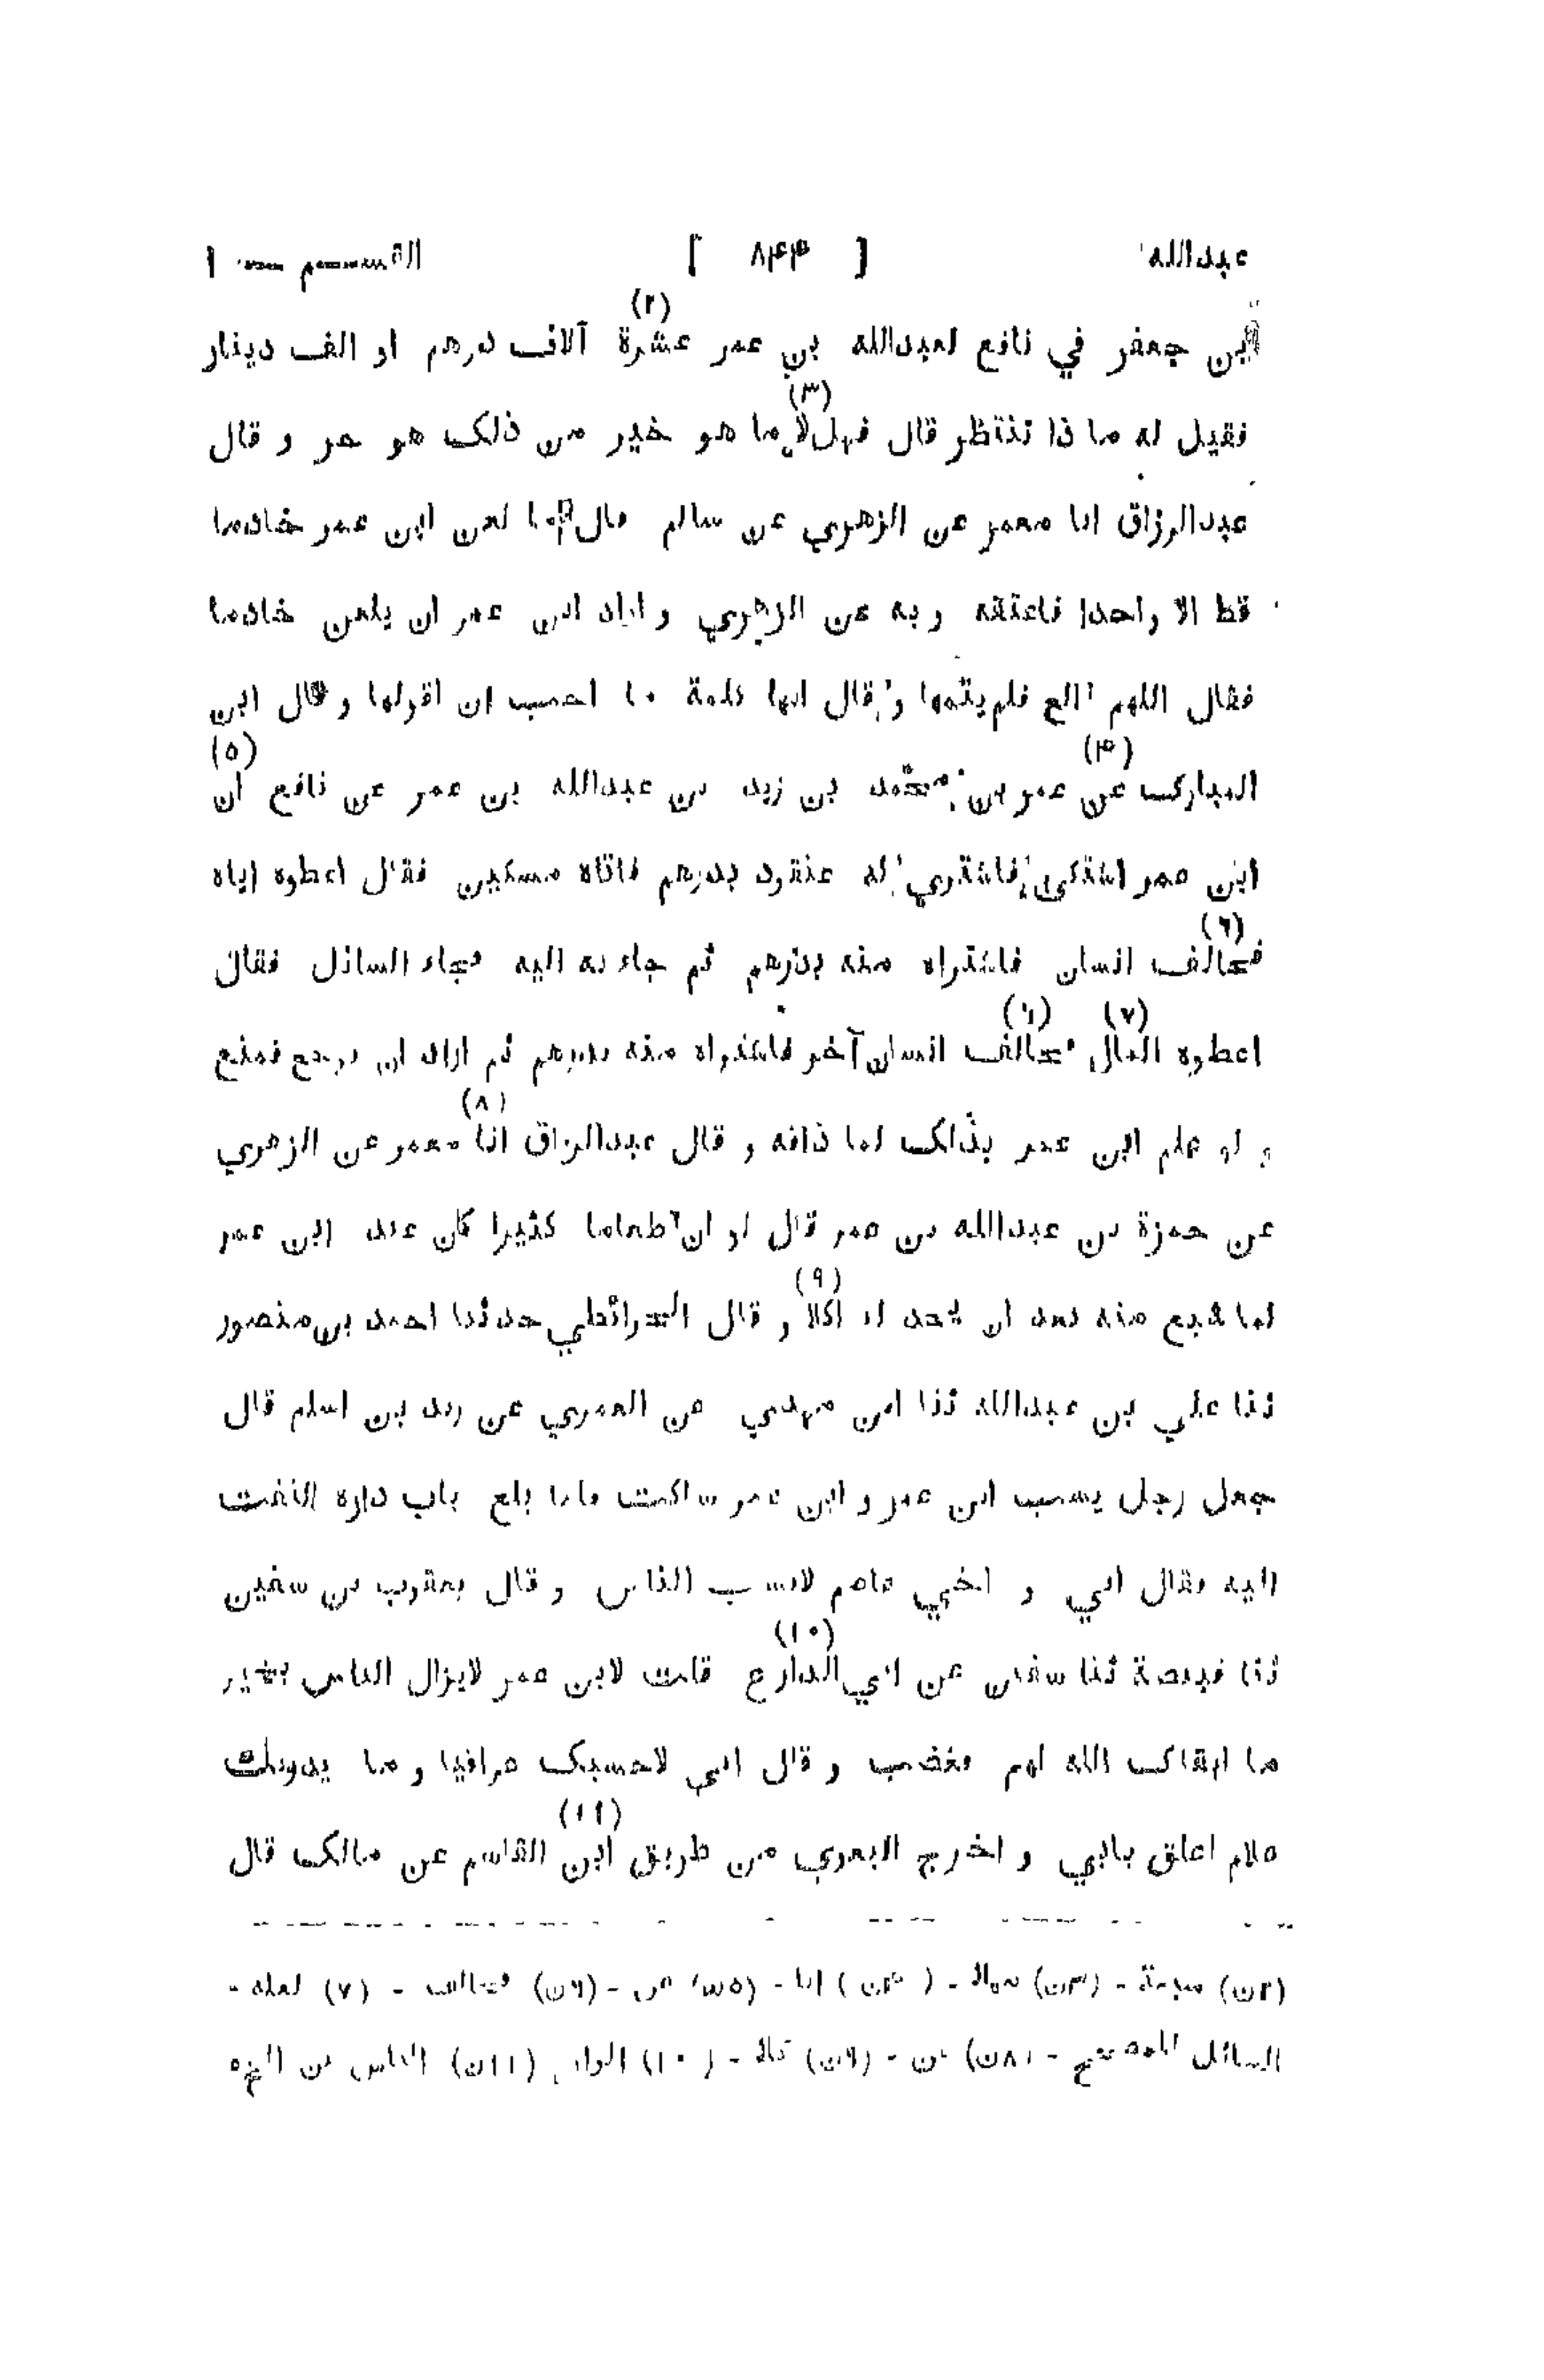 عبدالله [ ٨٤٤ ] القسم ١
(٢)
ابن جعفر في نافع لعبدالله بن عمر عشرة آلاف درهم او الف دينار
(٣)
فقيل له ما ذا تنتظر قال فهلا ما هو خير من ذلك هو حر و قال
عبدالرزاق انا معمر عن الزهري عن سالم قال ما لعن ابن عمر خادما
قط الا واحدا فاعتقه و به عن الزهري و اراد ابن عمر ان يلعن خادما
فقال اللهم الع فلم يتمها و قال انها كلمة ما احب ان اقولها و قال ابن
(٤) (٥)
المبارك عن عمر بن محمد بن زيد بن عبدالله بن عمر عن نافع ان
ابن عمر اشتكى فاشترى له عنقود بدرهم فاتاه مسكين فقال اعطوه اياه
(٦)
فخالف انسان فاشتراه منه بدرهم ثم جاء به اليه فجاء السائل فقال
(٧) (٦)
اعطوه المال فخالف انسان آخر فاشتراه منه بدرهم ثم اراد ان يرجع فمنع
(٨)
و لو علم ابن عمر بذلك لما ذاقه و قال عبدالرزاق انا معمر عن الزهري
عن حمزة بن عبدالله بن عمر قال لو ان طعاما كثيرا كان عند ابن عمر
(٩)
لما شبع منه بعد ان يجد له اكلا و قال الخرائطي حدثنا احمد بن منصور
ثنا علي بن عبدالله ثنا ابن مهدي عن العمري عن زيد بن اسلم قال
جعل رجل يسب ابن عمر و ابن عمر ساكت فلما بلغ باب داره التفت
اليه فقال اني و اخي عاصم لانسب الناس و قال يعقوب بن سفين
(١٠)
ثنا قبيصة ثنا سفين عن ابي الدارع قلت لابن عمر لايزال الناس بخير
ما ابقاك الله لهم فغضب و قال اني لاحسبك عراقيا و ما يدريك
(١١)
علام اغلق بابي و اخرج البغوي من طريق ابن القاسم عن مالك قال
(٢ن) سبعة - (٣ن) - (٤ن) انا - (٥ن) عن - (٦ن) فخالف - (٧) لعله -
السائل المصحح - (٨ن) عن - (٩ن) - (١٠) (١١ن) الناس عن